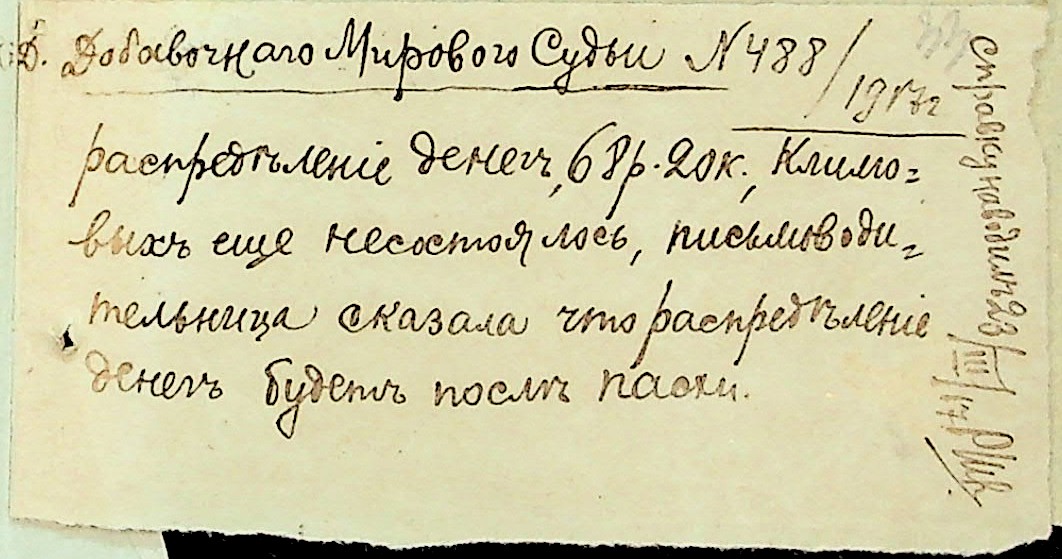 Д. Добавочнаго Мирового Судьи N 488/1917г
распредѣленіе денегъ, 68р. 20к., Климо=
выхъ еще несостоялось, письмоводи=
тельница сказала что распредѣленіе
денегъ будетъ послѣ пасхи.
Справку наводилъ 23/III/17